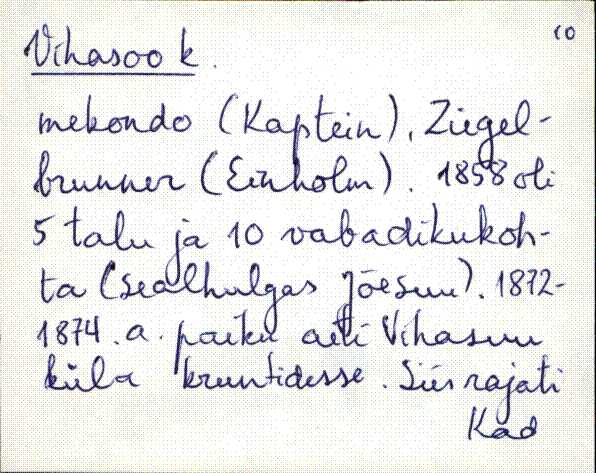 10
Vihasoo k.
mekondo (Kaptein), Ziegel-
brunner (Einholm). 1858 oli
5 talu ja 10 vabadikukoh-
ta (sealhulgas Jõesuu). 1872-
1874. a. paiku aeti Vihasuu
küla kruntidesse. Siis rajati
Kad